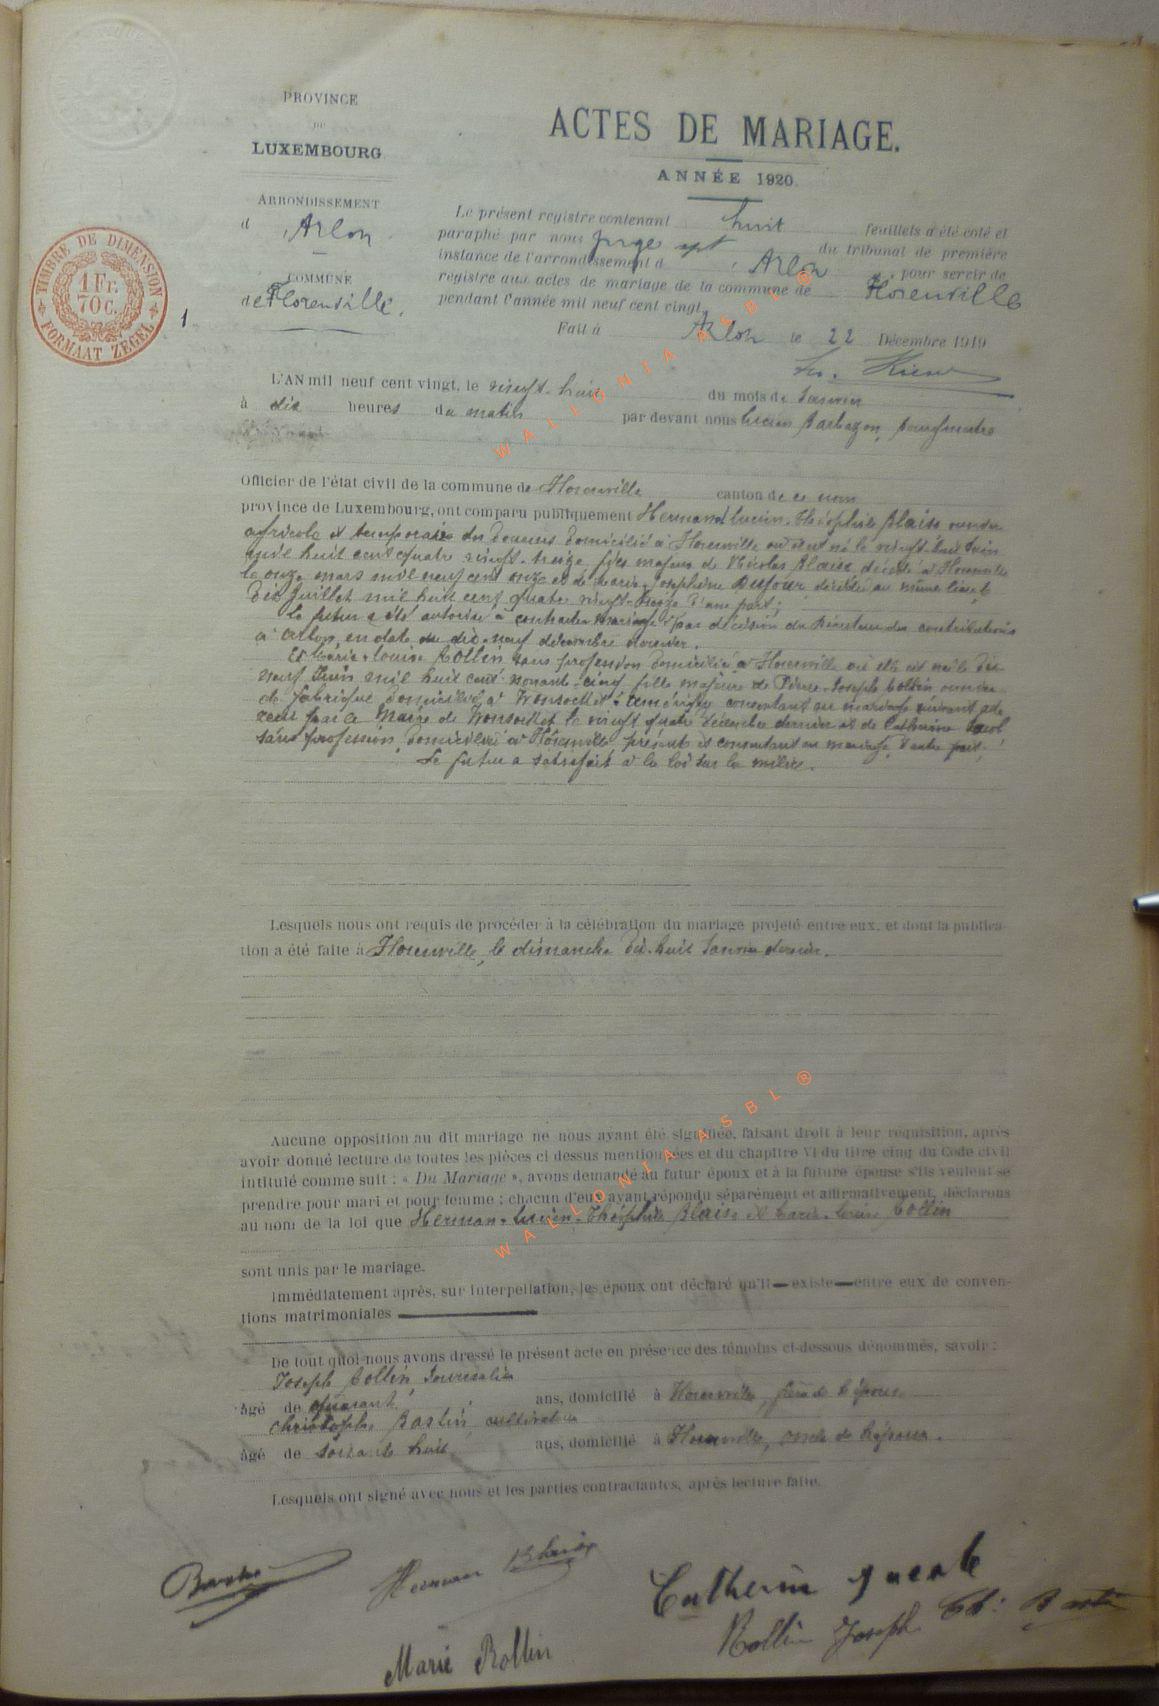 PROVINCE
DU
LUXEMBOURG
ARRONDISSEMENT
d Arlon
COMMUNE
de Florenville.
TIMBRE DE DIMENSION
1 Fr.
70 C.
FORMAAT ZEGEL
1
ACTES DE MARIAGE.
ANNÉE 1920.
Le présent registre contenant huit feuillets a été coté et
paraphé par nous juge du tribunal de première
instance de l'arrondissement d Arlon pour servir de
registre aux actes de mariage de la commune de Florenville
pendant l'année mil neuf cent vingt.
Fait à Arlon le 22 Décembre 1919
L'AN mil neuf cent vingt, le vingt-huit du mois de Janvier
à dix heures du matin par devant nous Lucien Barbazon, bourgmestre
Officier de l'état civil de la commune de Florenville canton de ce nom
province de Luxembourg, ont comparu publiquement Herman-Lucien-Théophile Blaise ouvrier
agricole et temporaire des douanes domicilié à Florenville où il est né le vingt-huit Juin
mil huit cent quatre vingt-treize, fils majeur de Nicolas Blaise, décédé à Florenville
le onze mars mil neuf cent onze et de Marie-Josephine Dufour décédée au même lieu le
dix Juillet mil huit cent quatre vingt-treize d'une part;
Le futur a été autorisé à contracter mariage par décision du Directeur des contributions
à Arlon, en date du dix-neuf décembre dernier.
Et Marie-Louise Collin sans profession domiciliée à Florenville où elle est née le dix
neuf Juin mil huit cent nonante-cinq fille majeure de Pierre-Joseph Collin ouvrier
de fabrique domicilié à Woonsocket Amérique consentant au mariage suivant acte
reçu par le Maire de Woonsocket le vingt quatre décembre dernier et de Catherine Jacob
sans profession, domiciliée à Florenville présente et consentant au mariage, d'autre part;
Le futur a satisfait à la loi sur la milice.
Lesquels nous ont requis de procéder à la célébration du mariage projeté entre eux, et dont la publica-
tion a été faite à Florenville, le dimanche dix-huit Janvier dernier.
Aucune opposition au dit mariage ne nous ayant été signifiée, faisant droit à leur réquisition, après
avoir donné lecture de toutes les pièces ci dessus mentionnées et du chapitre VI du titre cinq du Code civil
intitulé comme suit : « Du Mariage », avons demandé au futur époux et à la future épouse s'ils veulent se
prendre pour mari et pour femme ; chacun d'eux ayant répondu séparément et affirmativement, déclarons
au nom de la loi que Herman-Lucien-Théophile Blaise et Marie-Louise Collin
sont unis par le mariage.
Immédiatement après, sur interpellation, les époux ont déclaré qu'il — existe — entre eux de conven-
tions matrimoniales
De tout quoi nous avons dressé le présent acte en présence des témoins ci-dessous dénommés, savoir :
Joseph Collin, Journalier
âgé de quarante ans, domicilié à Florenville, frère de l'épouse
Christophe Bastin, cultivateur
âgé de soixante huit ans, domicilié à Florenville, oncle de l'épouse.
Lesquels ont signé avec nous et les parties contractantes, après lecture faite.
Herman Blaise
Catherin Jacob
Marie Kollin
Kollin Joseph
Ch: Bastin
WALLONIA ASBL ®
WALLONIA ASBL ®